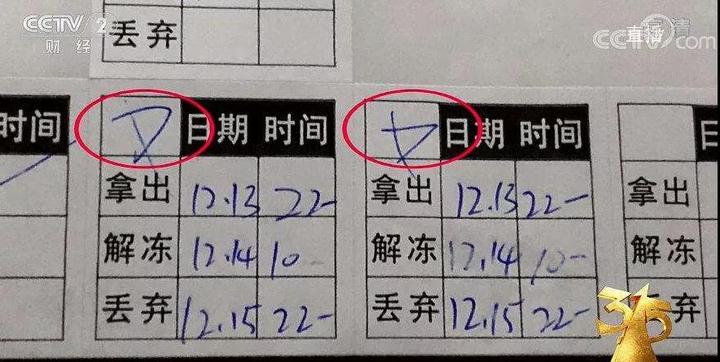 CCTV 2
财经
直播
CCTV.com
丢弃
时间
日期 时间
拿出 12.13 22-
解冻 12.14 10-
丢弃 12.15 22-
日期 时间
拿出 12.13 22-
解冻 12.14 10-
丢弃 12.15 22-
拿出
解冻
丢弃
315